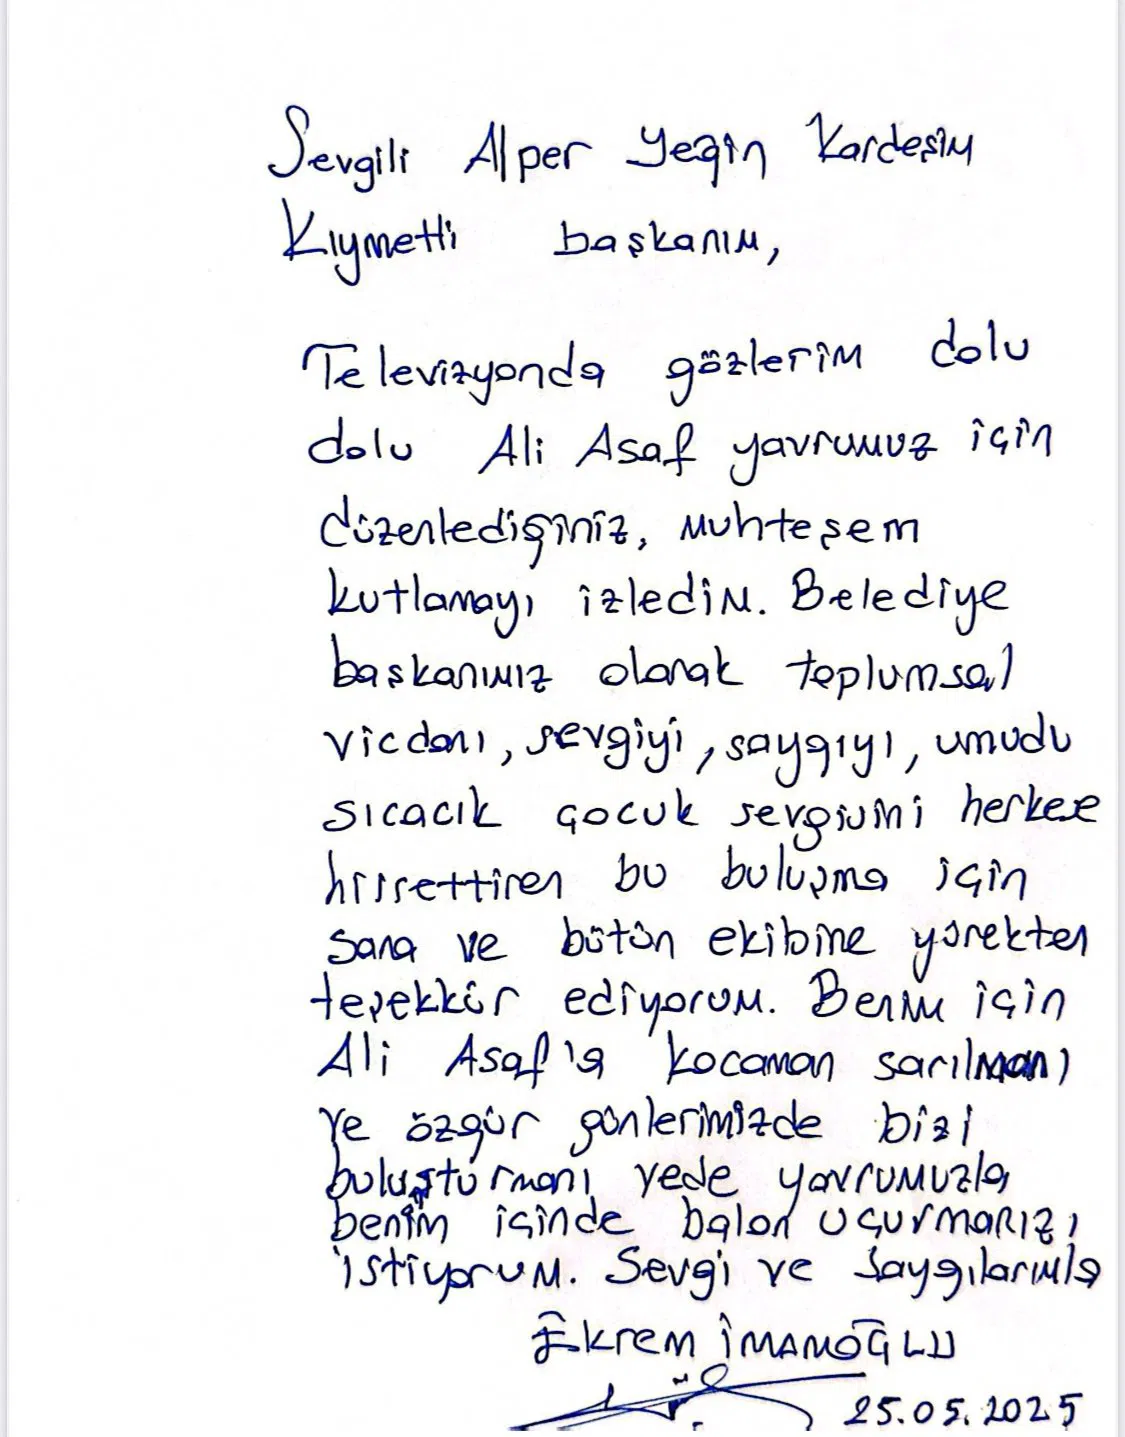 Sevgili Alper Yeğin Kardeşim
Kıymetli başkanım,
Televizyonda gözlerim dolu
dolu Ali Asaf yavrumuz için
düzenlediğiniz, muhteşem
kutlamayı izledim. Belediye
başkanımız olarak toplumsal
vicdanı, sevgiyi, saygıyı, umudu
sıcacık çocuk sevgisini herkese
hissettiren bu buluşma için
sana ve bütün ekibine yürekten
teşekkür ediyorum. Benim için
Ali Asaf'a kocaman sarılmanı
ve özgür günlerimizde bizi
buluşturmanı vede yavrumuzla
benim içinde balon uçurmanızı
istiyorum. Sevgi ve Saygılarımla
Ekrem İMAMOĞLU
25.05.2025